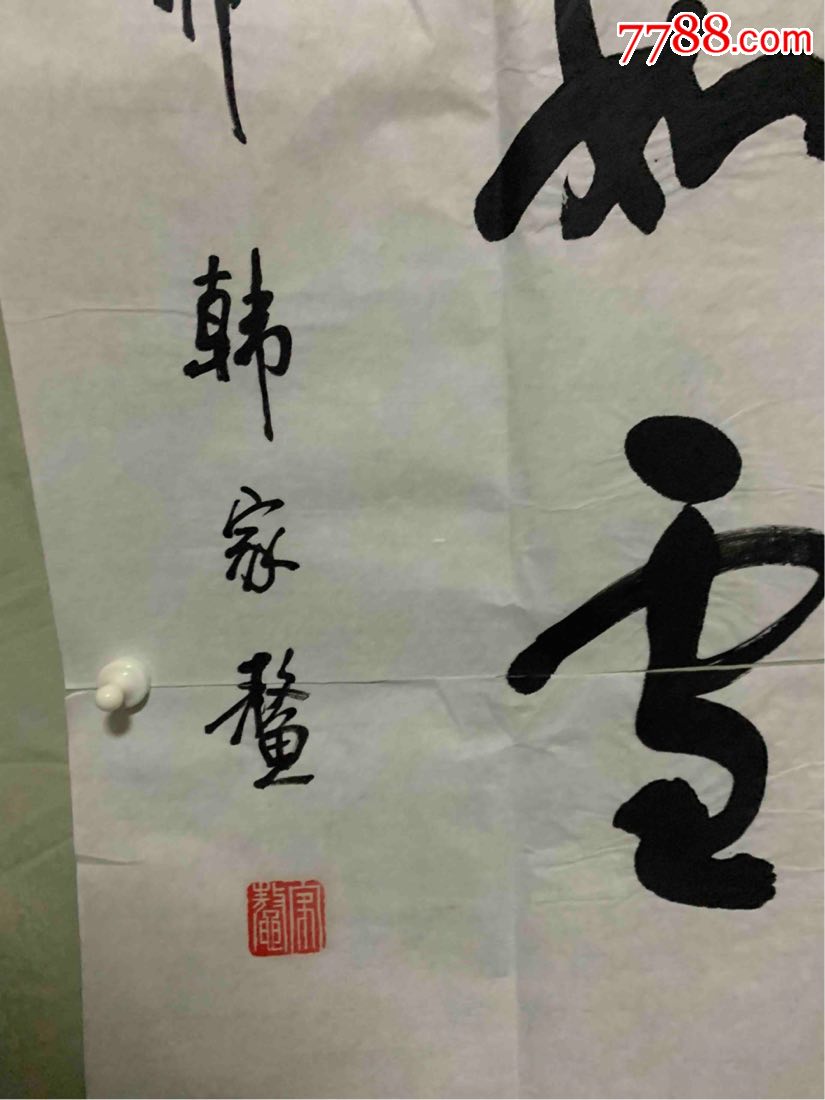 7788.com
如雪
韩家鳌
家鳌